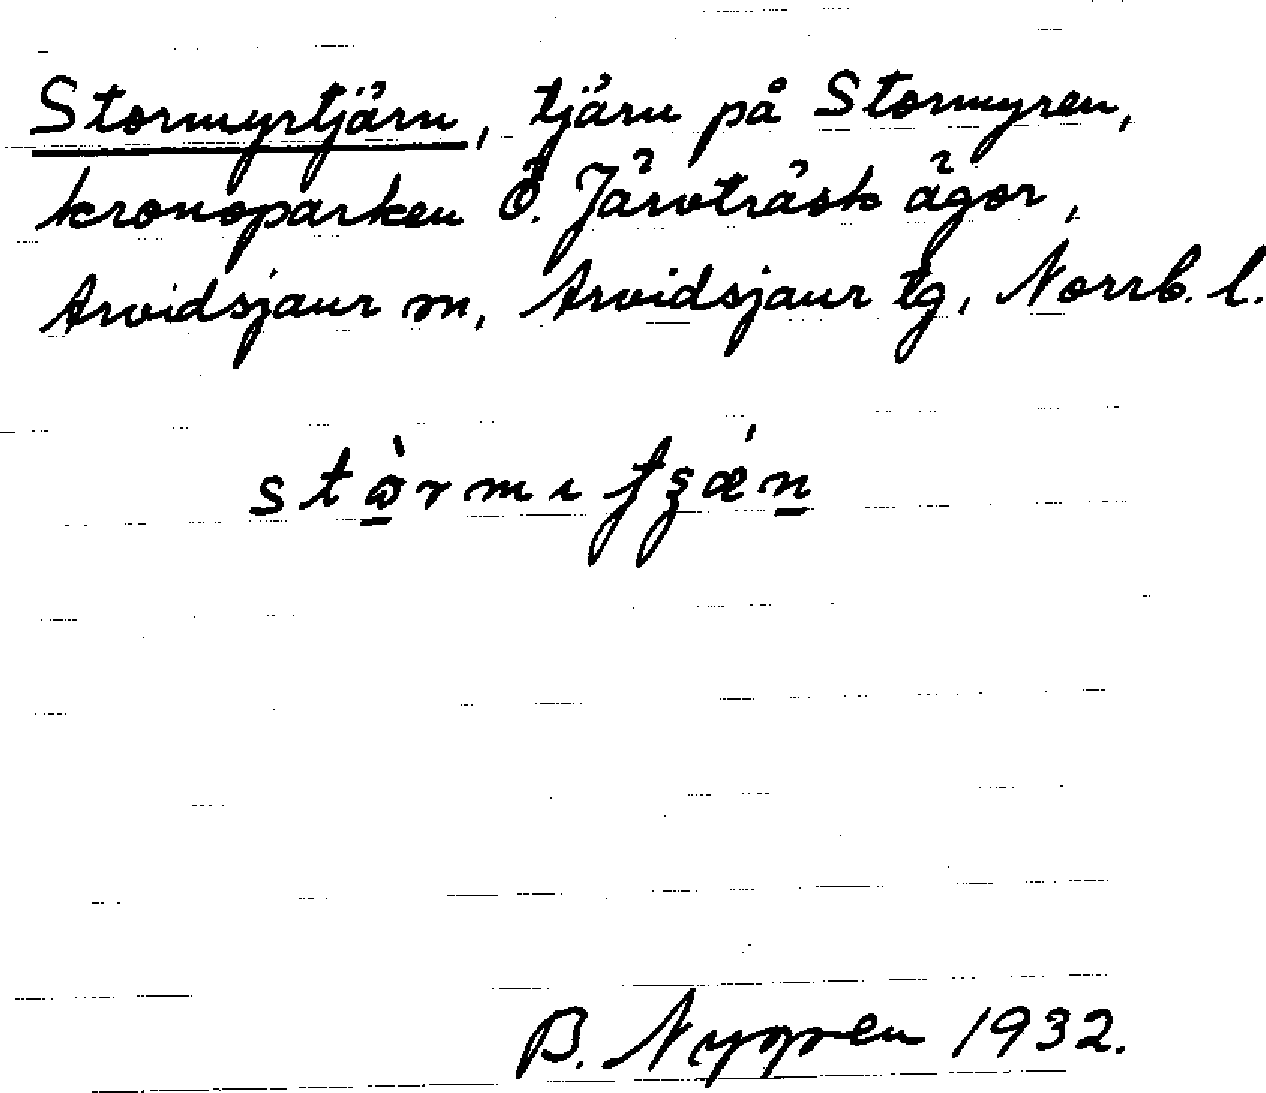 Stormyrtjärn, tjärn på Stormyren,
kronoparken Ö. Järvträsk ägor,
Arvidsjaur sn, Arvidsjaur tg, Norrb. l.
B. Nygren 1932.